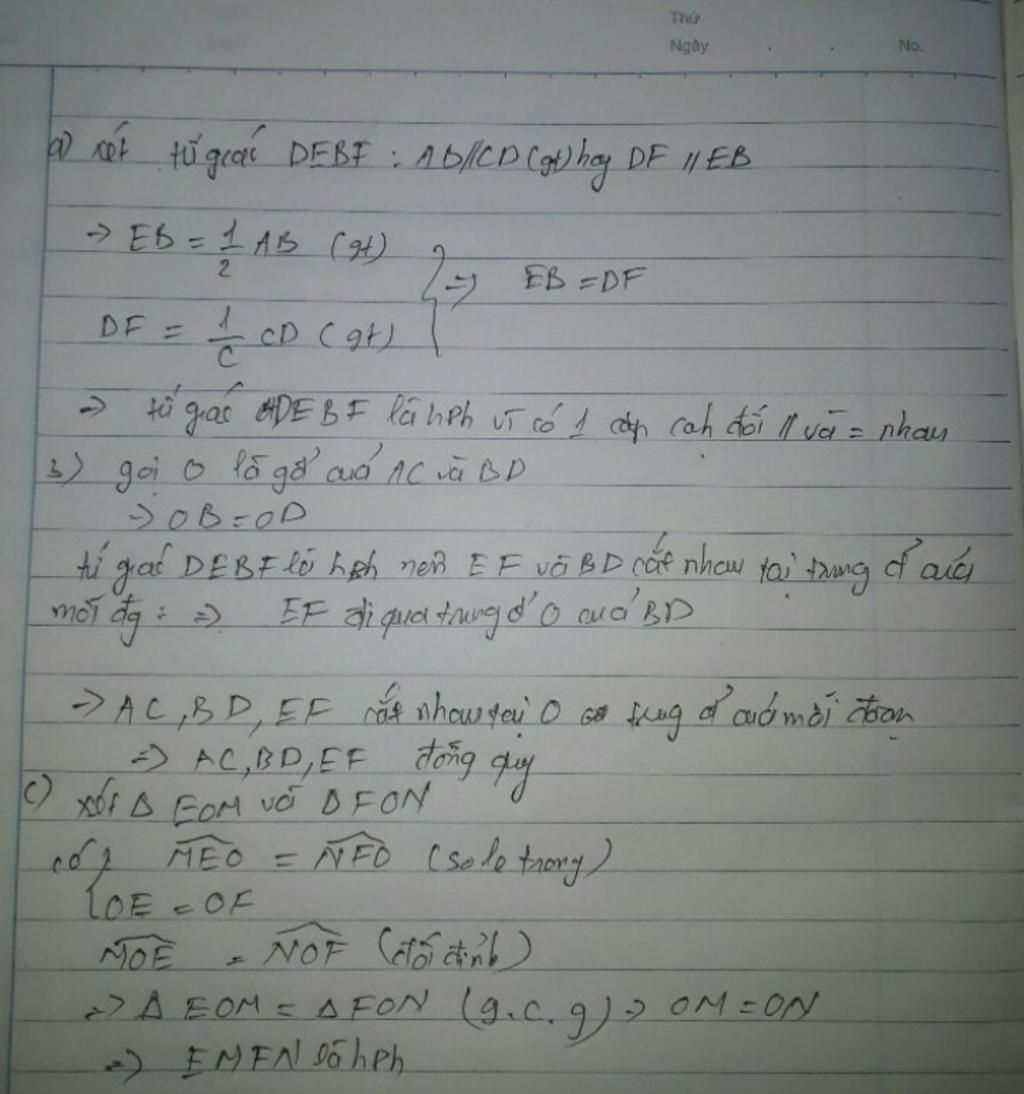 Thứ
Ngày . . No.
a) xét tứ giác DEBF : AB//CD (gt) hay DF // EB
→ EB = 1/2 AB (gt)
DF = 1/C CD (gt) } => EB = DF
→ tứ giác DEBF là hph vì có 1 cặp cạh đối // và = nhau
b) gọi O là gđ cuả AC và BD
→ OB = OD
tứ giác DEBF là hbh nên EF và BD cắt nhau tại trung đ' của
mỗi đg : => EF đi qua trung đ' O cuả BD
→ AC, BD, EF cắt nhau tại O trug đ' cuả mỗi đoạn
=> AC, BD, EF đồng quy
c) xét Δ EOM và Δ FON
có { MEO = NFO (so le trong)
OE = OF
MOE = NOF (đối đỉnh)
=> Δ EOM = Δ FON (g.c.g) => OM = ON
=> EMFN là hph